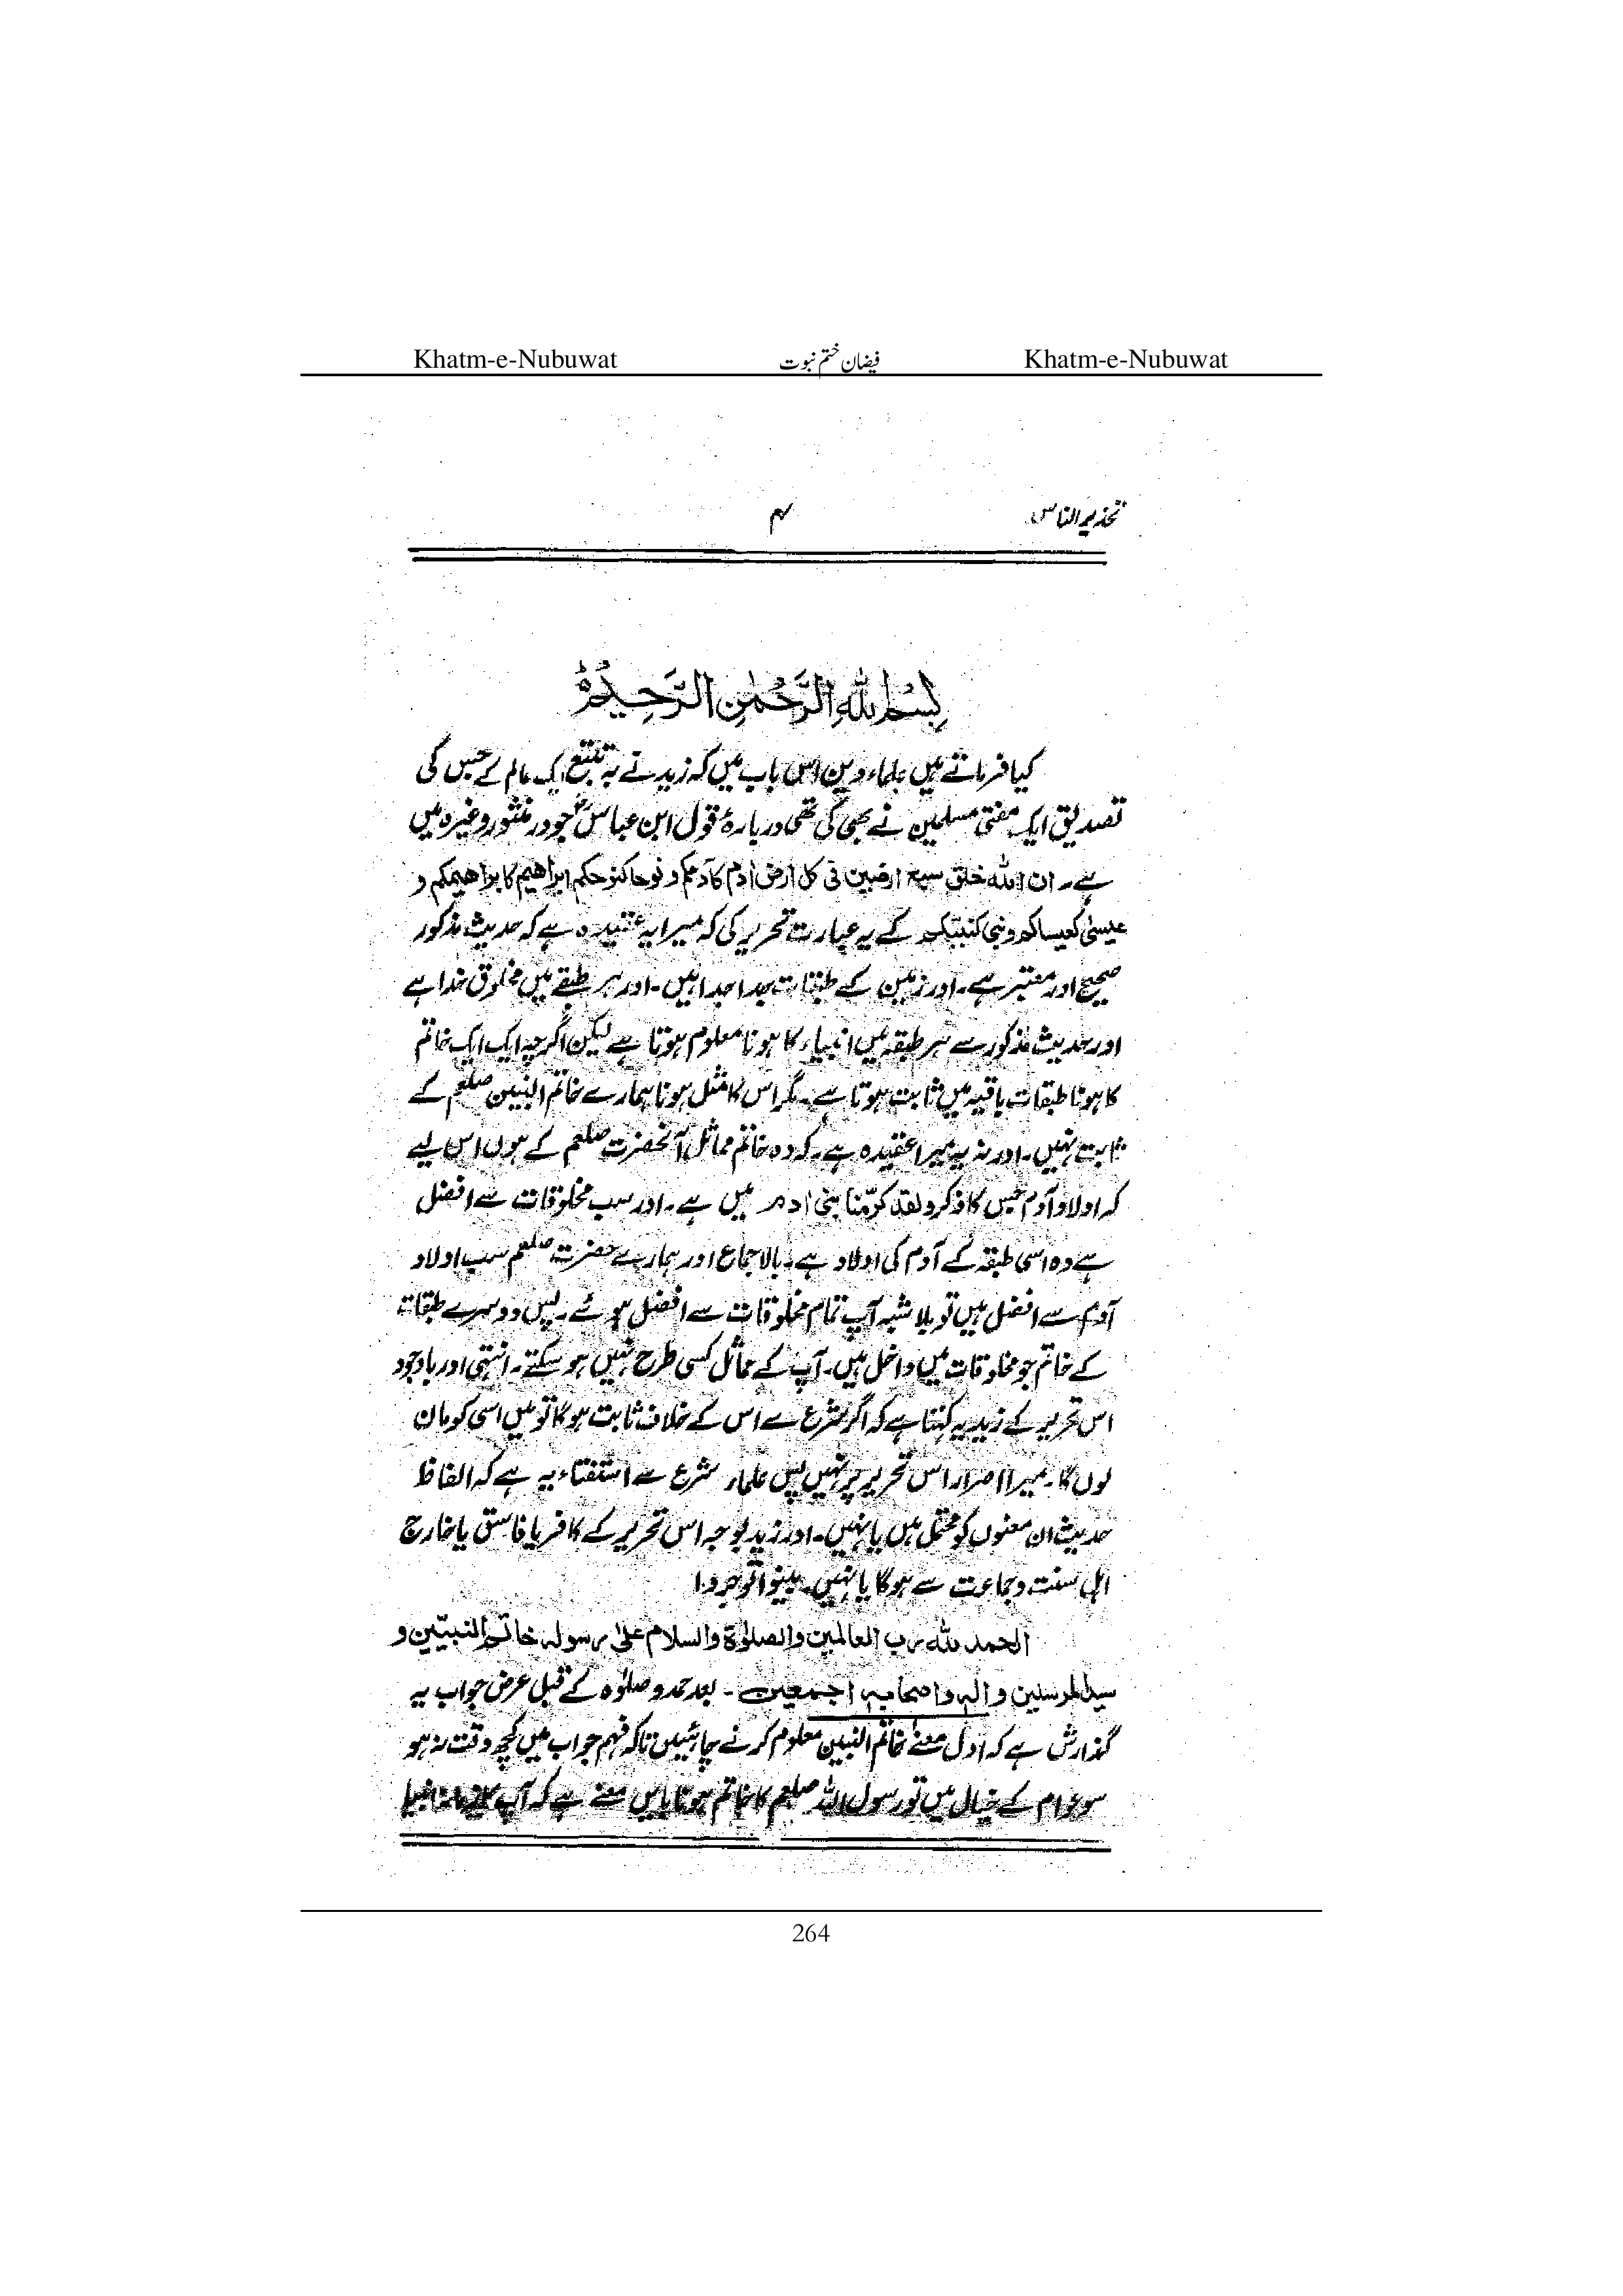 Khatm-e-Nubuwat فیضان ختم نبوت Khatm-e-Nubuwat
تحذیر الناس ۴
بِسْمِ اللهِ الرَّحْمٰنِ الرَّحِيْمِ
کیا فرماتے ہیں علماء دین اس باب میں کہ زید نے بہ تتبع ایک عالم کے جس کی
تصدیق ایک مفتی مسلمین نے بھی کی تھی دربارۂ قول ابن عباسؓ جو در منثور وغیرہ میں
ہے۔ ان اللہ خلق سبع ارضین فی کل ارض اٰدم کآدمکم و نوحا کنوحکم ابراھیم کابراھیمکم و
عیسیٰ کعیساکم ونبی کنبیکم کے یہ عبارت تحریر کی کہ میرا یہ عقیدہ ہے کہ حدیث مذکور
صحیح اور معتبر ہے۔ اور زمین کے طبقات جدا جدا ہیں۔ اور ہر طبقے میں مخلوق خدا ہے
اور حدیث مذکور سے ہر طبقہ میں انبیاء کا ہونا معلوم ہوتا ہے لیکن اگرچہ ایک ایک خاتم
کا ہونا طبقات باقیہ میں ثابت ہوتا ہے۔ مگر اس کا مثل ہونا ہمارے خاتم النبیین صلعم کے
ثابت نہیں۔ اور نہ یہ میرا عقیدہ ہے۔ کہ وہ خاتم مماثل آنحضرت صلعم کے ہوں اس لیے
کہ اولاد آدم جس کا ذکر ولقد کرّمنا بنی اٰدم میں ہے۔ اور سب مخلوقات سے افضل
ہے وہ اسی طبقہ کے آدم کی اولاد ہے۔ بالاجماع اور ہمارے حضرت صلعم سب اولاد
آدم سے افضل ہیں تو بلا شبہ آپ تمام مخلوقات سے افضل ہوئے۔ پس دوسرے طبقات
کے خاتم جو مخلوقات میں داخل ہیں۔ آپ کے مماثل کسی طرح نہیں ہو سکتے۔ انتہی اور باوجود
اس تحریر کے زید یہ کہتا ہے کہ اگر شرع سے اس کے خلاف ثابت ہوگا تو میں اسی کو مان
لوں گا۔ میرا اصرار اس تحریر پر نہیں پس علماء شرع سے استفتاء یہ ہے کہ الفاظ
حدیث ان معنوں کو محتمل ہیں یا نہیں۔ اور زید بوجہ اس تحریر کے کافر یا فاسق یا خارج
اہل سنت و جماعت سے ہوگا یا نہیں۔ بینوا توجروا
الحمد للہ رب العالمین والصلوٰۃ والسلام علیٰ رسولہ خاتم النبیّین و
سید المرسلین و اٰلہ واصحابہ اجمعین۔ بعد حمد و صلوٰۃ کے قبل عرض جواب یہ
گذارش ہے کہ اول معنے خاتم النبیین معلوم کرنے چاہئیں تاکہ فہم جواب میں کچھ دقت نہ ہو
سو عوام کے خیال میں تو رسول اللہ صلعم کا خاتم ہونا بایں معنے ہے کہ آپ کا زمانہ انبیا
264